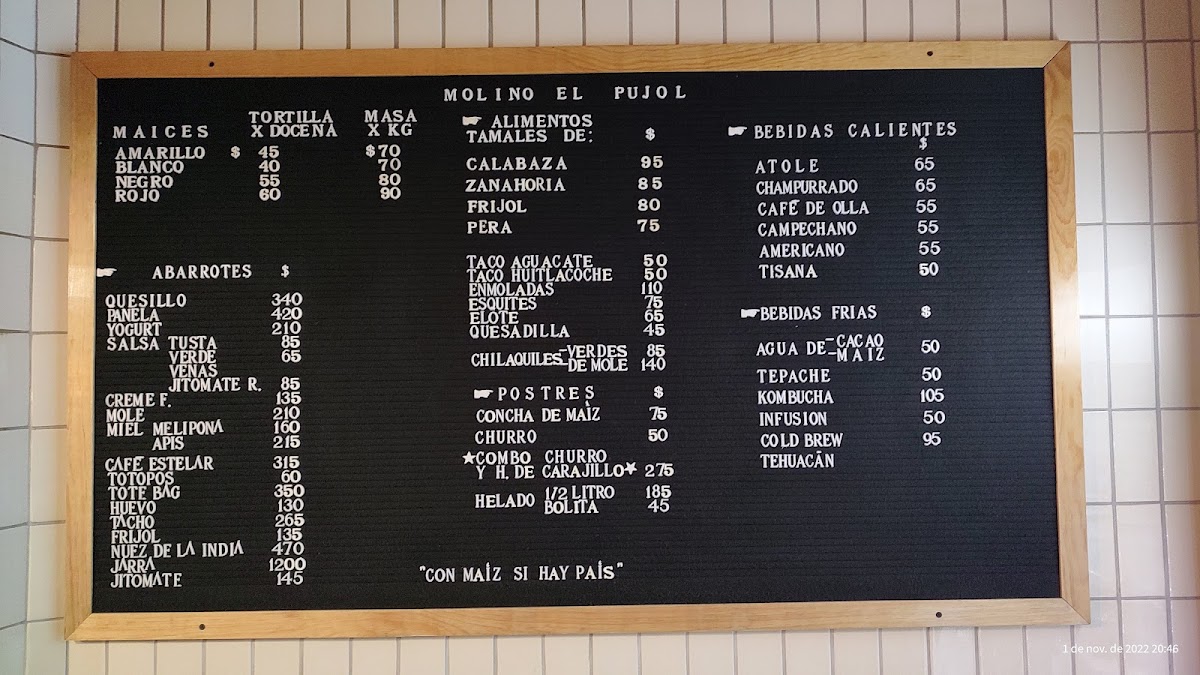 MOLINO EL PUJOL
MAICES TORTILLA X DOCENA MASA X KG
AMARILLO $ 45 $70
BLANCO 40 70
NEGRO 55 80
ROJO 60 90
ABARROTES $
QUESILLO 340
PANELA 420
YOGURT 210
SALSA TUSTA 85
VERDE 65
VENAS
JITOMATE R. 85
CREME F. 135
MOLE 210
MIEL MELIPONA 160
APIS 215
CAFÉ ESTELAR 315
TOTOPOS 60
TOTE BAG 350
HUEVO 130
TACHO 265
FRIJOL 135
NUEZ DE LA INDIA 470
JARRA 1200
JITOMATE 145
ALIMENTOS
TAMALES DE: $
CALABAZA 95
ZANAHORIA 85
FRIJOL 80
PERA 75
TACO AGUACATE 50
TACO HUITLACOCHE 50
ENMOLADAS 110
ESQUITES 75
ELOTE 65
QUESADILLA 45
CHILAQUILES-VERDES 85
-DE MOLE 140
POSTRES $
CONCHA DE MAÍZ 75
CHURRO 50
★COMBO CHURRO
Y H. DE CARAJILLO★ 275
HELADO 1/2 LITRO 185
BOLITA 45
"CON MAÍZ SI HAY PAÍS"
BEBIDAS CALIENTES
$
ATOLE 65
CHAMPURRADO 65
CAFÉ DE OLLA 55
CAMPECHANO 55
AMERICANO 55
TISANA 50
BEBIDAS FRIAS $
AGUA DE-CACAO 50
-MAIZ
TEPACHE 50
KOMBUCHA 105
INFUSION 50
COLD BREW 95
TEHUACÁN
1 de nov. de 2022 20:46